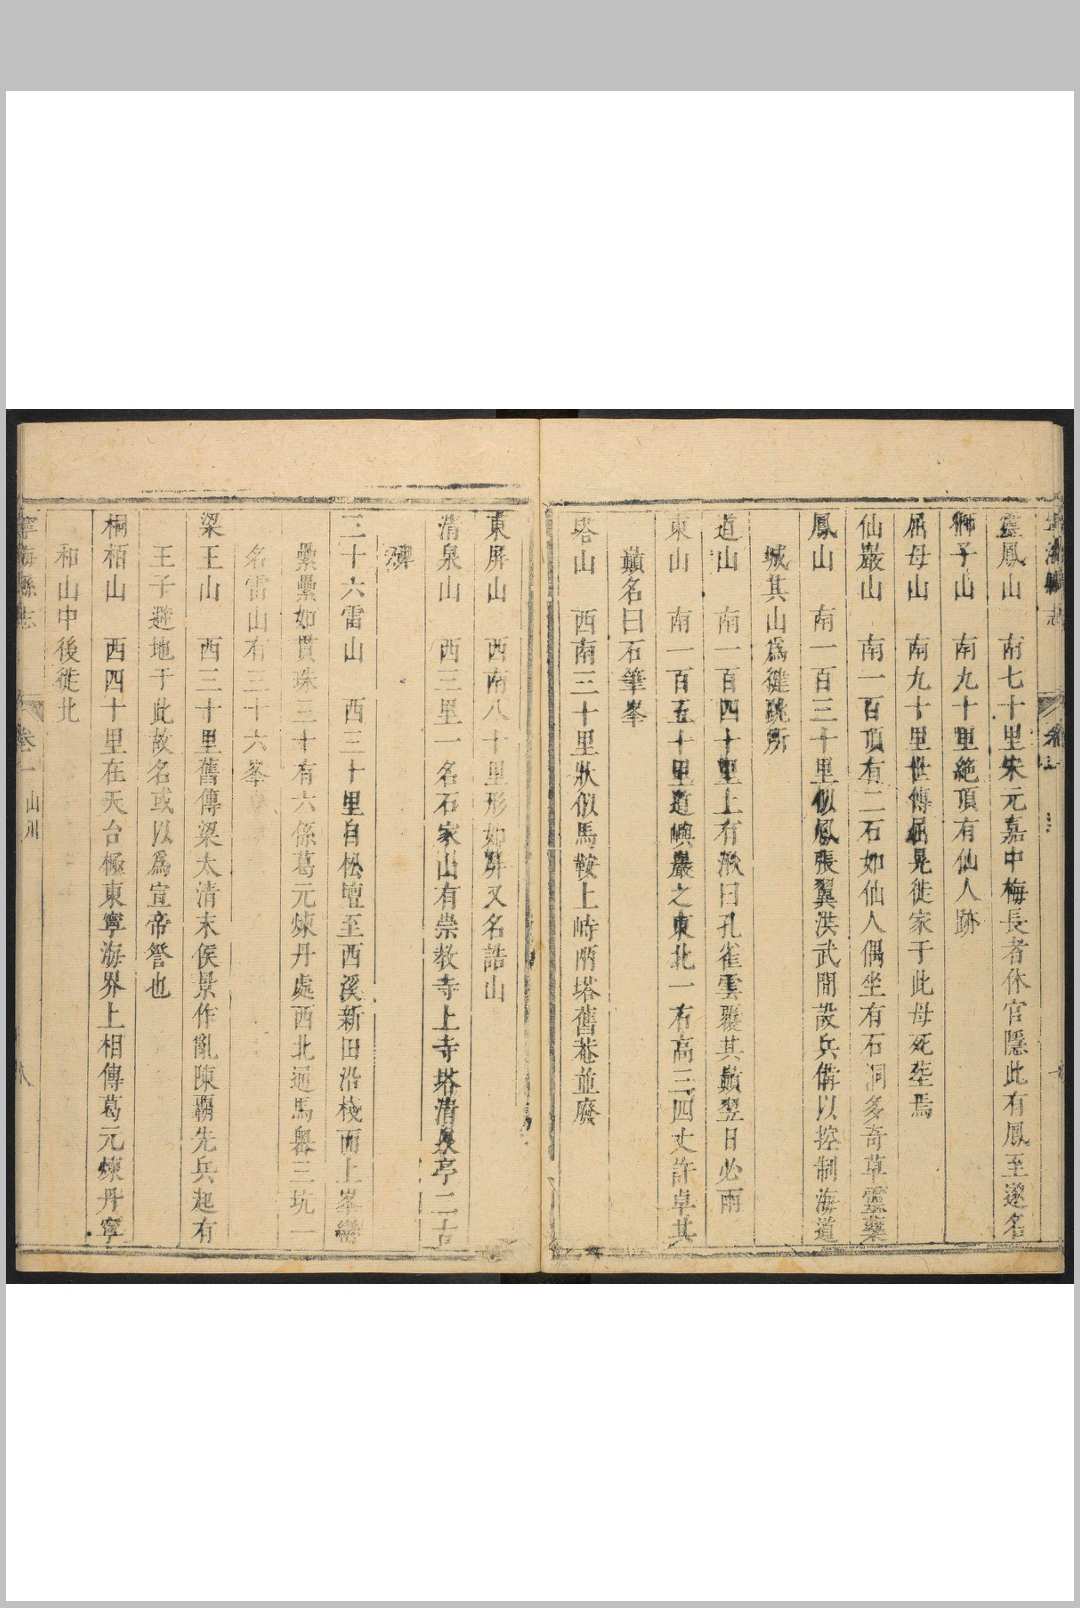 靈鳳山　南七十里宋元嘉中梅長者休官隱此有鳳至遂名
獅子山　南九十里絶頂有仙人跡
屈母山　南九十里世傳屈晃徙家于此母死塟焉
仙巖山　南一百頂有二石如仙人偶坐有石洞多奇草靈藥
鳳山　南一百三十里似鳳張翼洪武間設兵備以控制海道
城其山爲健跳所
道山　南一百四十里上有湫曰孔雀雲覆其巔翌日必雨
東山　南一百五十里道嶼巖之東北一石高三四丈許卓其
巔名曰石筆峯
塔山　西南三十里狀似馬鞍上峙兩塔舊菴並廢
東屏山　西南八十里形如屏又名誥山
清泉山　西三里一名石家山有崇教寺上寺塔清泉亭二古
碑
三十六雷山　西三十里自松壇至西溪新田沿棧而上峯巒
纍纍如貫珠三十有六係葛元煉丹處西北通馬嶴三坑一
名雷山有三十六峯
梁王山　西三十里舊傳梁太清末侯景作亂陳霸先兵起有
王子避地于此故名或以爲宣帝詧也
桐栢山　西四十里在天台極東寧海界上相傳葛元煉丹寧
和山中後徙北
寧海縣志　卷一　山川